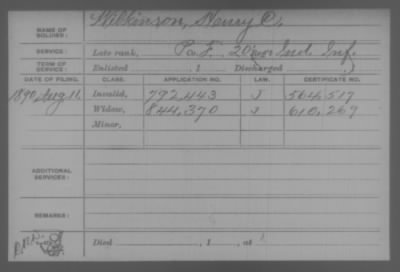 NAME OF SOLDIER: Wilkinson, Henry C.
SERVICE: Late rank, Pvt. 20 Ind. Inf.
TERM OF SERVICE: Enlisted , 1 Discharged
DATE OF FILING. CLASS. APPLICATION NO. LAW. CERTIFICATE NO.
1890, Aug 11, Invalid, 792,443 J 564,517
Widow, 844,370 J 610,269
Minor,
ADDITIONAL SERVICES:
REMARKS:
Died , 1 , at